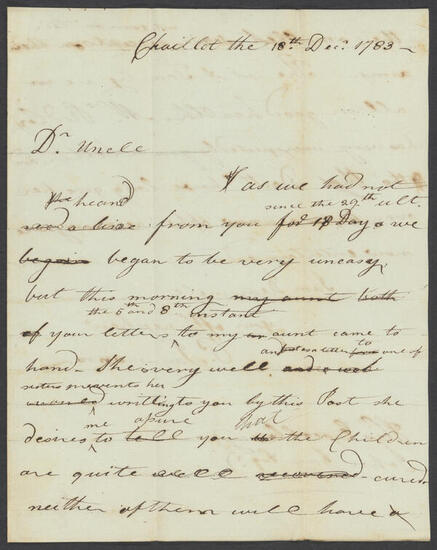 Chaillot the 18th Decr. 1783 -
Dr. Uncle
as we had not
heard
since the 29th ult.
a line from you for 18 Days we
began began to be very uneasy,
but this morning my aunt both
the 5 and 8th instant
of your letters to my aunt came to
one of
hand - She is very well
prevents her
writing to you by this Post she
me assure that
desires to tell you the Children
are quite well recovered cured
neither of them will have a